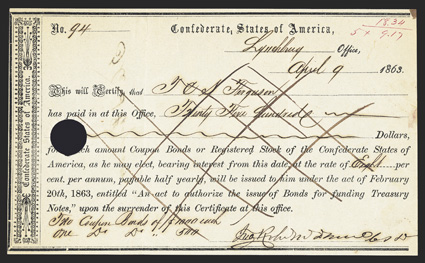 No. 94 Confederate States of America,
18.34
5 x 9.17
Lynchburg Office,
April 9 1863.
This will Certify, that Ferguson
has paid in at this Office, Twenty Five Hundred
Dollars,
for which amount Coupon Bonds or Registered Stock of the Confederate States of
America, as he may elect, bearing interest from this date, at the rate of Eight per
cent. per annum, payable half yearly, will be issued to him under the act of February
20th, 1863, entitled "An act to authorize the issue of Bonds for funding Treasury
Notes," upon the surrender of this Certificate at this office.
Two Coupon Bonds of $1000 each
One Do Do " 500
Confederate States of America.